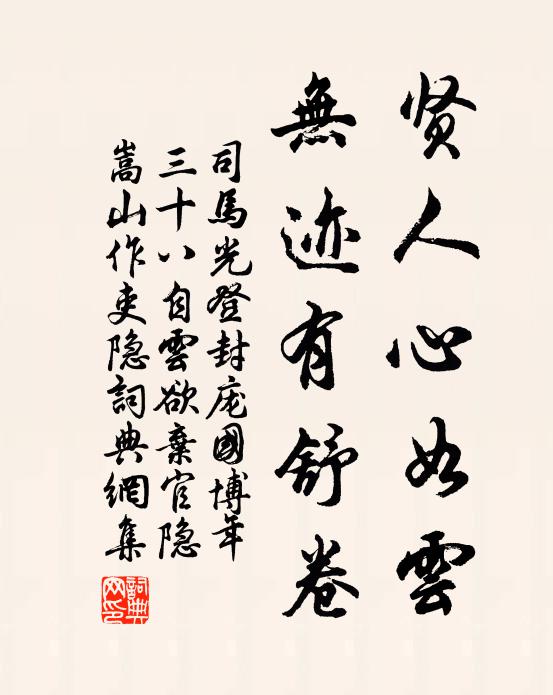 贤人心如雲
無迹有舒卷
司馬光登封庞國博年
三十八自雲欲棄官隐
嵩山作吏隐詞典網集
詞典
网印